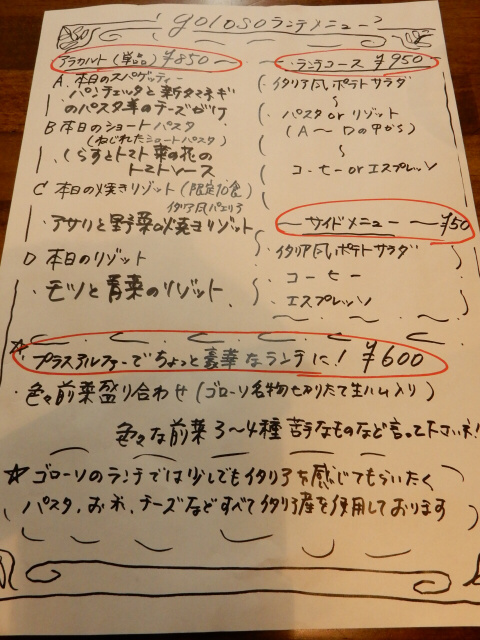 golosoランチメニュー
アラカルト (単品) ¥850ー
A. 本日のスパゲッティー
パンチェッタと新タマネギ
のパスタ 羊のチーズがけ
B 本日のショートパスタ
(ねじれたショートパスタ)
しらすとトマト 菜の花の
トマトソース
C 本日の焼きリゾット (限定10食)
イタリア風パエリア
・アサリと野菜の焼きリゾット
D 本日のリゾット
・モツと青菜のリゾット
・ランチコース ¥950
イタリア風ポテトサラダ
〜
パスタ or リゾット
(A〜Dの中から)
〜
コーヒー or エスプレッソ
サイドメニュー 〜¥50
・イタリア風ポテトサラダ
・コーヒー
・エスプレッソ
☆プラスアルファーでちょっと豪華なランチに! ¥600
色々前菜盛り合わせ (ゴローソ名物切りたて生ハム入り)
色々な前菜3〜4種 苦手なものなど言って下さいネ!
☆ゴローソのランチでは少しでもイタリアを感じてもらいたく
パスタ、お米、チーズなどすべてイタリア産を使用しております